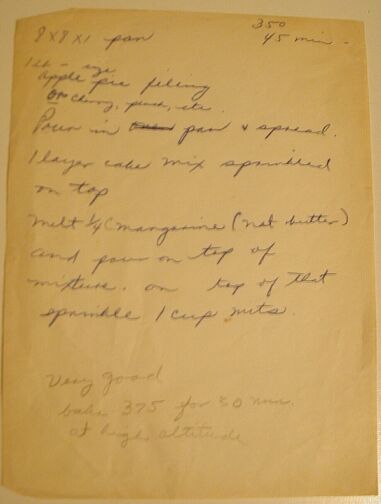 350
8 x 8 x 1 pan 45 min -
1 lb - size
apple pie filing
or cherry, peach, etc.
Pour in pan & spread.
1 layer cake mix sprinkled
on top
melt 1/4 C margarine (not butter)
and pour on top of
mixture. on top of that
sprinkle 1 cup nuts.
Very good
bake 375 for 30 min.
at high altitude